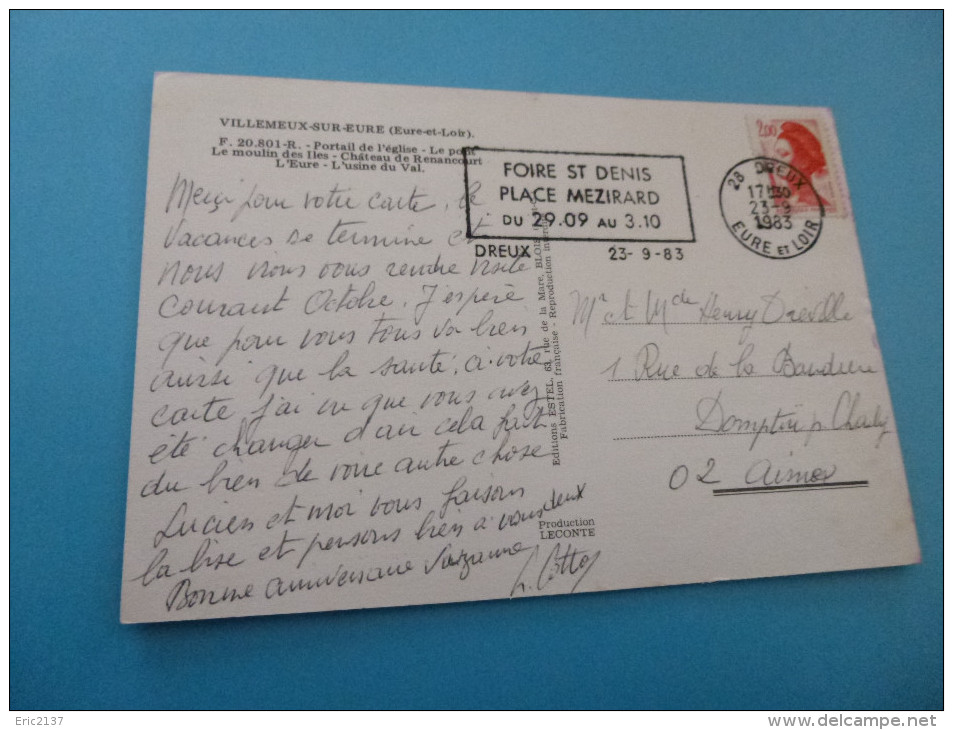 VILLEMEUX-SUR-EURE (Eure-et-Loir).
F. 20.801-R. - Portail de l'église - Le pont
Le moulin des Iles - Château de Renancourt
L'Eure - L'usine du Val.
FOIRE ST DENIS
PLACE MEZIRARD
DU 29.09 AU 3.10
DREUX 23-9-83
2,00
28 DREUX
17H30
23-9
1983
EURE ET LOIR
Merçi pour votre carte, le
vacances se termine et
nous irons vous rendre visite
courant Octobre. J'espère
que pour vous tous va bien
ainsi que la santé, à votre
carte j'ai vu que vous avez
été changer d'air cela fait
du bien de voire autre chose
Lucien et moi vous faisons
la bise et pensons bien à vous deux
Bonne anniversaire Suzanne
Editions ESTEL, 63, rue de la Mare, BLOIS
Fabrication française - Reproduction interdite
Production
LECONTE
Mr et Mde Henry Dreville
1 Rue de la Bandière
02 Aisne
Eric2137
www.delcampe.net